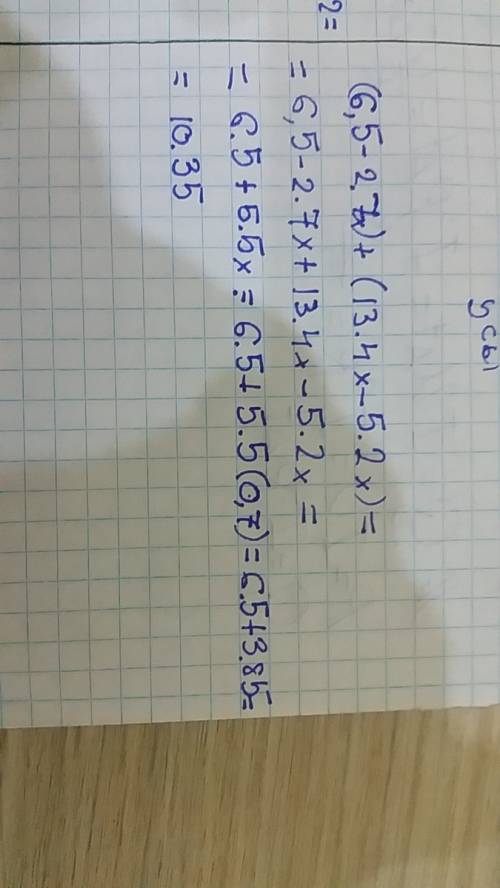 2=
усы
(6,5-2,7x)+(13.4x-5.2x)=
=6,5-2.7x+13.4x-5.2x=
=6.5+5.5x=6.5+5.5(0,7)=6.5+3.85=
=10.35